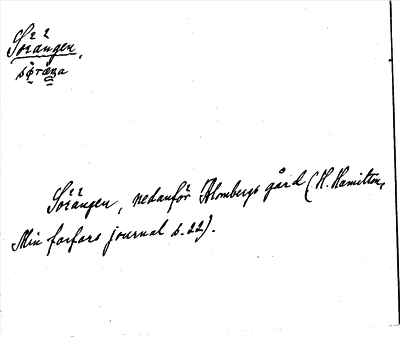 Sörängen,
söräŋa
Sörängen, nedanför Blombergs gård (H. Hamilton,
Min farfars journal s. 22).